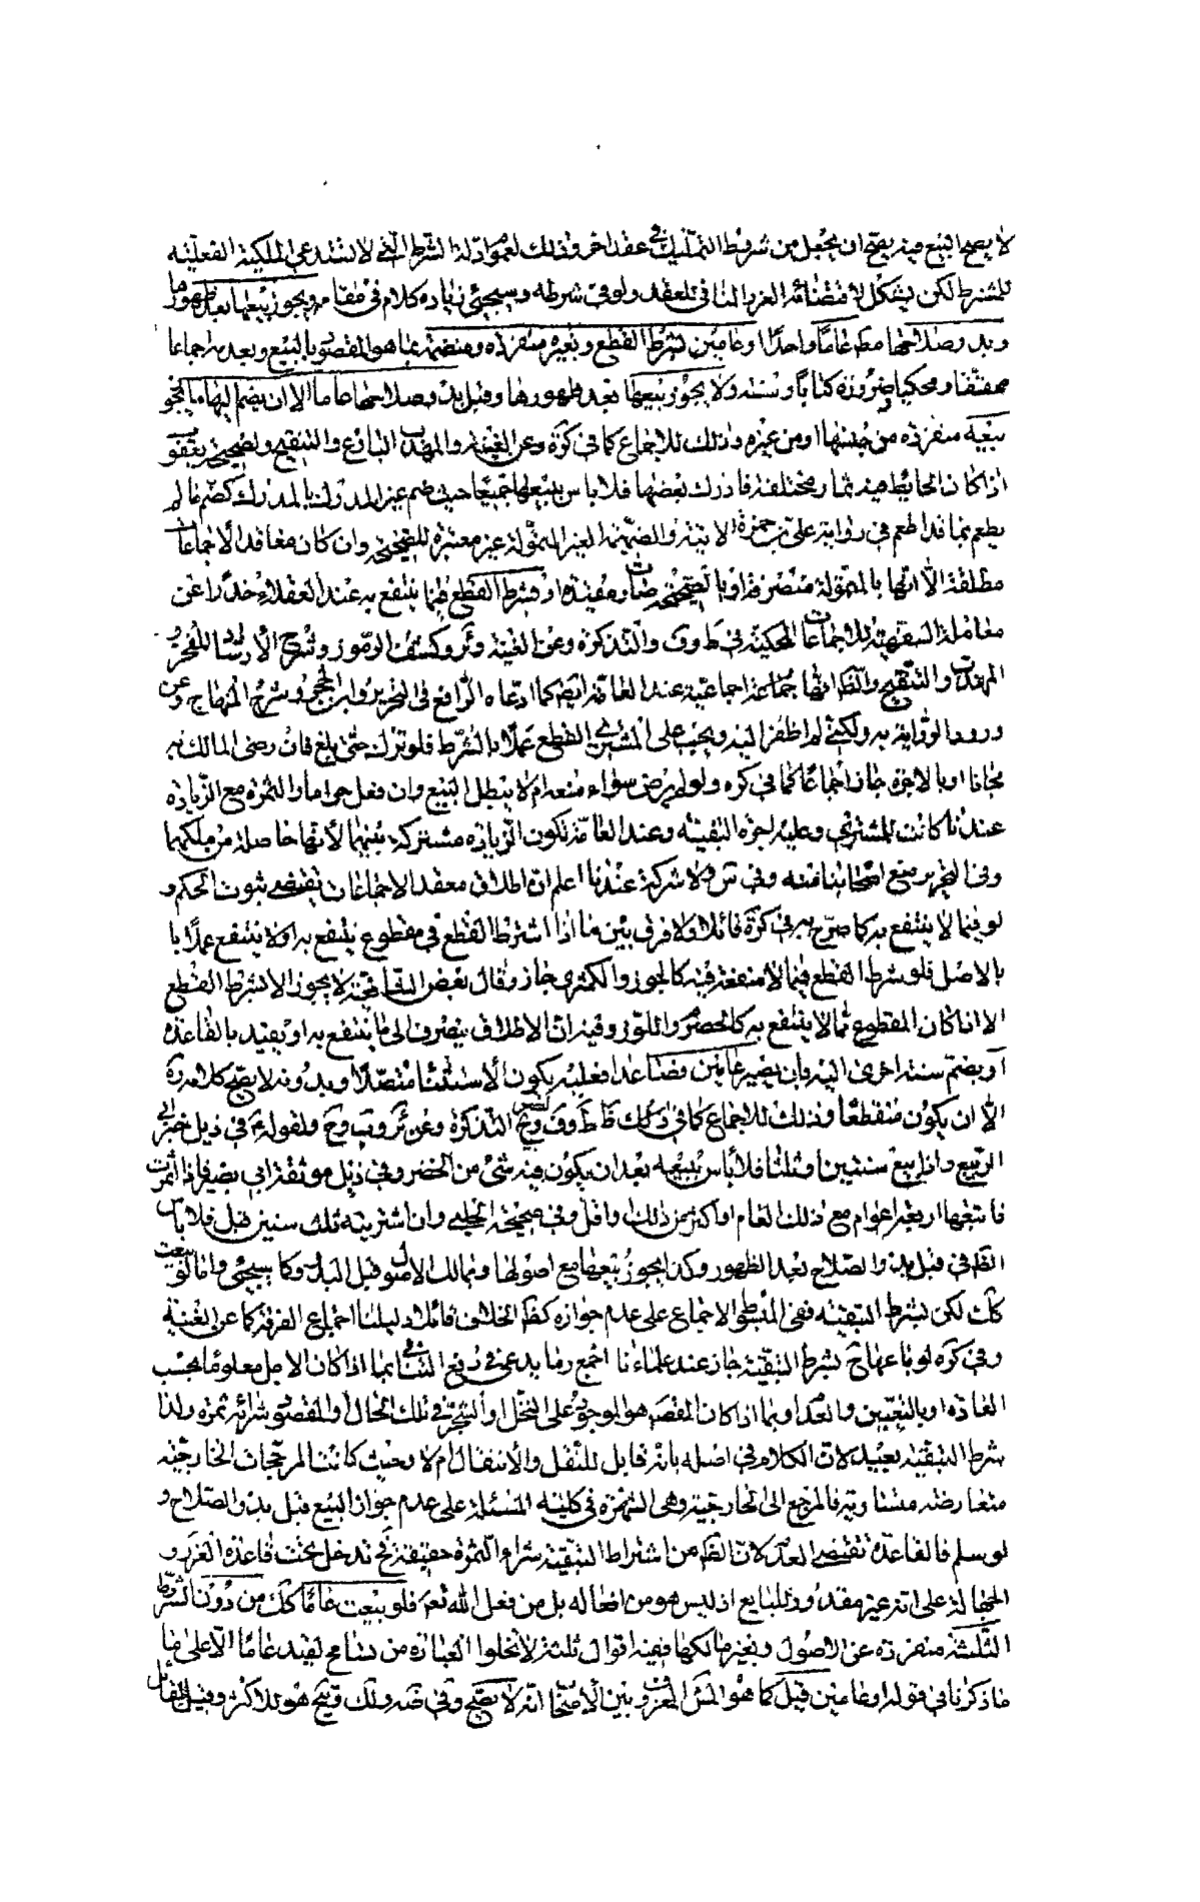 لا يصح البيع فيه يصح ان يجعل من شروط التمليك في عقد اخر وذلك لعموم ادلة الشرط التي لا تستدعي الملكية الفعلية
للشرط لكن يشكل لاقتضائه الغرر المنافي للعقد ولو في شرطه وسيجئ زيادة كلام في مقام ويجوز بيعها بعد ظهورها
وبدو صلاحها مط عاما واحدا وعامين بشرط القطع وبغيره منفردة ومنضمة بما هو المقصود بالبيع وبعدمه اجماعا
محققا ومحكيا وضرورة كتابا وسنة ولا يجوز بيعها بعد ظهورها وقبل بدو صلاحها عاما الا ان يضم اليها ما يجوز
بيعه منفردة من جنسها او من غيره وذلك للاجماع كما في كرة وعن الغنية والمهذب البارع والتنقيح ولصحيح يعقوب
اذا كان الحائط فيه ثمار مختلفة فادرك بعضها فلا باس ببيعها جميعا حيث ضم غير المدرك بالمدرك كضم ما لم
يطعم بما قد اطعم في رواية علي بن حمزة الاتية والضميمة الغير المتمولة غير معتبرة للصحيحة وان كان معاقد الاجماعات
مطلقة الا انها بالمتمولة منصرفة او بالصحيحة صارت مقيدة او بشرط القطع فيما ينتفع به عند العقلاء حذرا عن
معاملة السفهية للاجماعات المحكية في ط وف والتذكرة وعن الغنية وئر وكشف الرموز وشرح الارشاد للفخر و
المهذب والتنقيح والظ انها جماعة اجماعية عند العامة ايضا كما ادعاه الرافعي في التحرير وابن الحجر وشرح المنهاج وعن
ورود الرواية به ولكني لم اظفر اليه ويجب على المشتري القطع عملا بالشرط فلو ترك حتى بلغ فان رضي المالك به
مجانا او بالاجرة جاز اجماعا كما في كره ولو لم يرض سواء منعه ام لا يبطل البيع وان فعل حراما والثمرة مع الزيادة
عندنا كانت للمشتري وعليه اجرة التبقية وعند العامة تكون الزيادة مشتركة بينهما لانها حاصلة من ملكهما
وفي التحرير منع اصحابنا منه وفي س ولا شركة عندنا اعلم ان اطلاق معقد الاجماعات يقتضي ثبوت الحكم و
لو فيما لا ينتفع به كما صرح به في كرة قائلا ولا فرق بين ما اذا اشترط القطع في مقطوع ينتفع به او لا ينتفع عملا با
بالاصل فلو شرط القطع فيما لا منفعة فيه كالجوز والكمثرى جاز وقال بعض الشافعية لا يجوز الا بشرط القطع
الا اذا كان المقطوع مما لا ينتفع به كالحصرم واللوز وفيه ان الاطلاق ينصرف الى ما ينتفع به او يقيد بالقاعدة
او بضم سنة اخرى اليه بان يصير عامين فصاعدا فعليه يكون الاستثناء متصلا وبدونه لا يصح كلامه رة
الا ان يكون منقطعا وذلك للاجماع كما في لك ط وف وتح التذكرة وعن ئر وب وح ولقوله ع في ذيل خبر
الربيع واذا بيع سنتين او ثلثا فلا باس ببيعه بعد ان يكون فيه شئ من الخضر وفي ذيل موثقة ابي بصير فاذا اثمرت
فابتعها اربعة اعوام مع ذلك العام او اكثر من ذلك او اقل وفي صحيحة الحلبي وان اشتريته ثلث سنين قبل فلا باس
الظ في قبل بدو الصلاح بعد الظهور وكذا يجوز بيعها مع اصولها ولمالك الاصول قبل البدو كما سيجئ واما لو بيعت
كك لكن بشرط التبقية ففي المبسوط الاجماع على عدم جوازه كظ الخلاف قائلا دليلنا اجماع الفرقة كما عن الغنية
وفي كره لو باعها بشرط التبقية جاز عند علمائنا اجمع ربما يدعى في رفع التنافي بما اذا كان الاجل معلوما بحسب
العادة او بالتعيين والعدم او بما اذا كان المقص هو الوجود على النخل والشجرة في تلك الحال والمقصود شرائه ثمرة ولذا
شرط التبقية بعيد لان الكلام في اصله بانه قابل للنقل والانتقال ام لا وحيث كانت المرجحات الخارجية
متعارضة متساوية فالمرجع الى الخارجية وهي الشهرة في كلية المسئلة على عدم جواز البيع قبل بدو الصلاح و
لو سلم فالقاعدة تقتضي العدم لان الظ من اشتراط التبقية شراء الثمرة حقيقة فح تدخل تحت قاعدة الغرر و
الجهالة على انه غير مقدور للبايع اذ ليس هو من افعاله بل من فعل الله تع فلو بيعت عاما كك من دون الشروط
الثلثة منفردة عن الاصول وبغير مالكها ففيه اقوال ثلثة لا تخلوا العبارة من تسامح لقيد عاما الا على ما
ما ذكرنا في قوله او عامين قيل كما هو المش المعروف بين الاصحاب انه لا يصح وفي ضه ولك وتيح هو للاكثر وقيل القائل